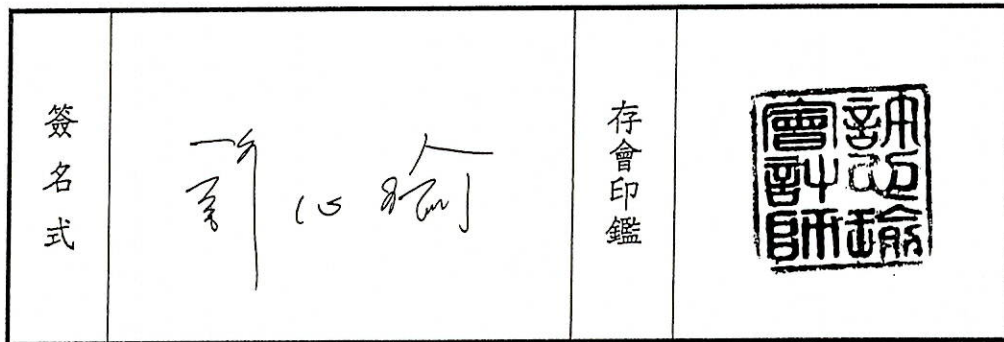 簽名式
許心瑜
存會印鑑
許心瑜
會計師